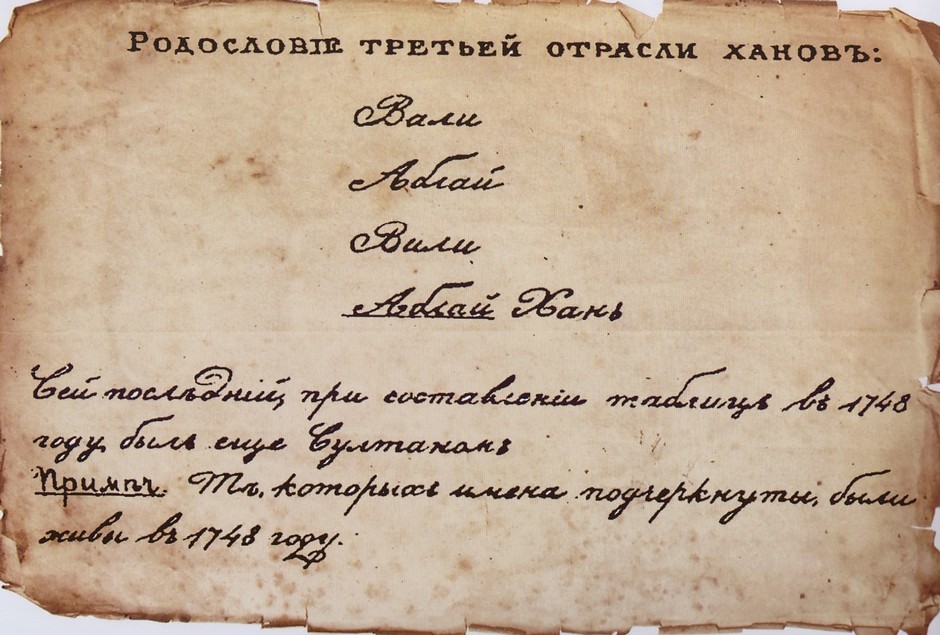 Родословіе третьей отрасли хановъ:
Вали
Аблай
Вили
Аблай Ханъ
Сей послѣдній, при составленіи таблицъ въ 1748
году, былъ еще Султаномъ
Примѣч. Тѣ, которыхъ имена подчеркнуты, были
живы въ 1748 году.